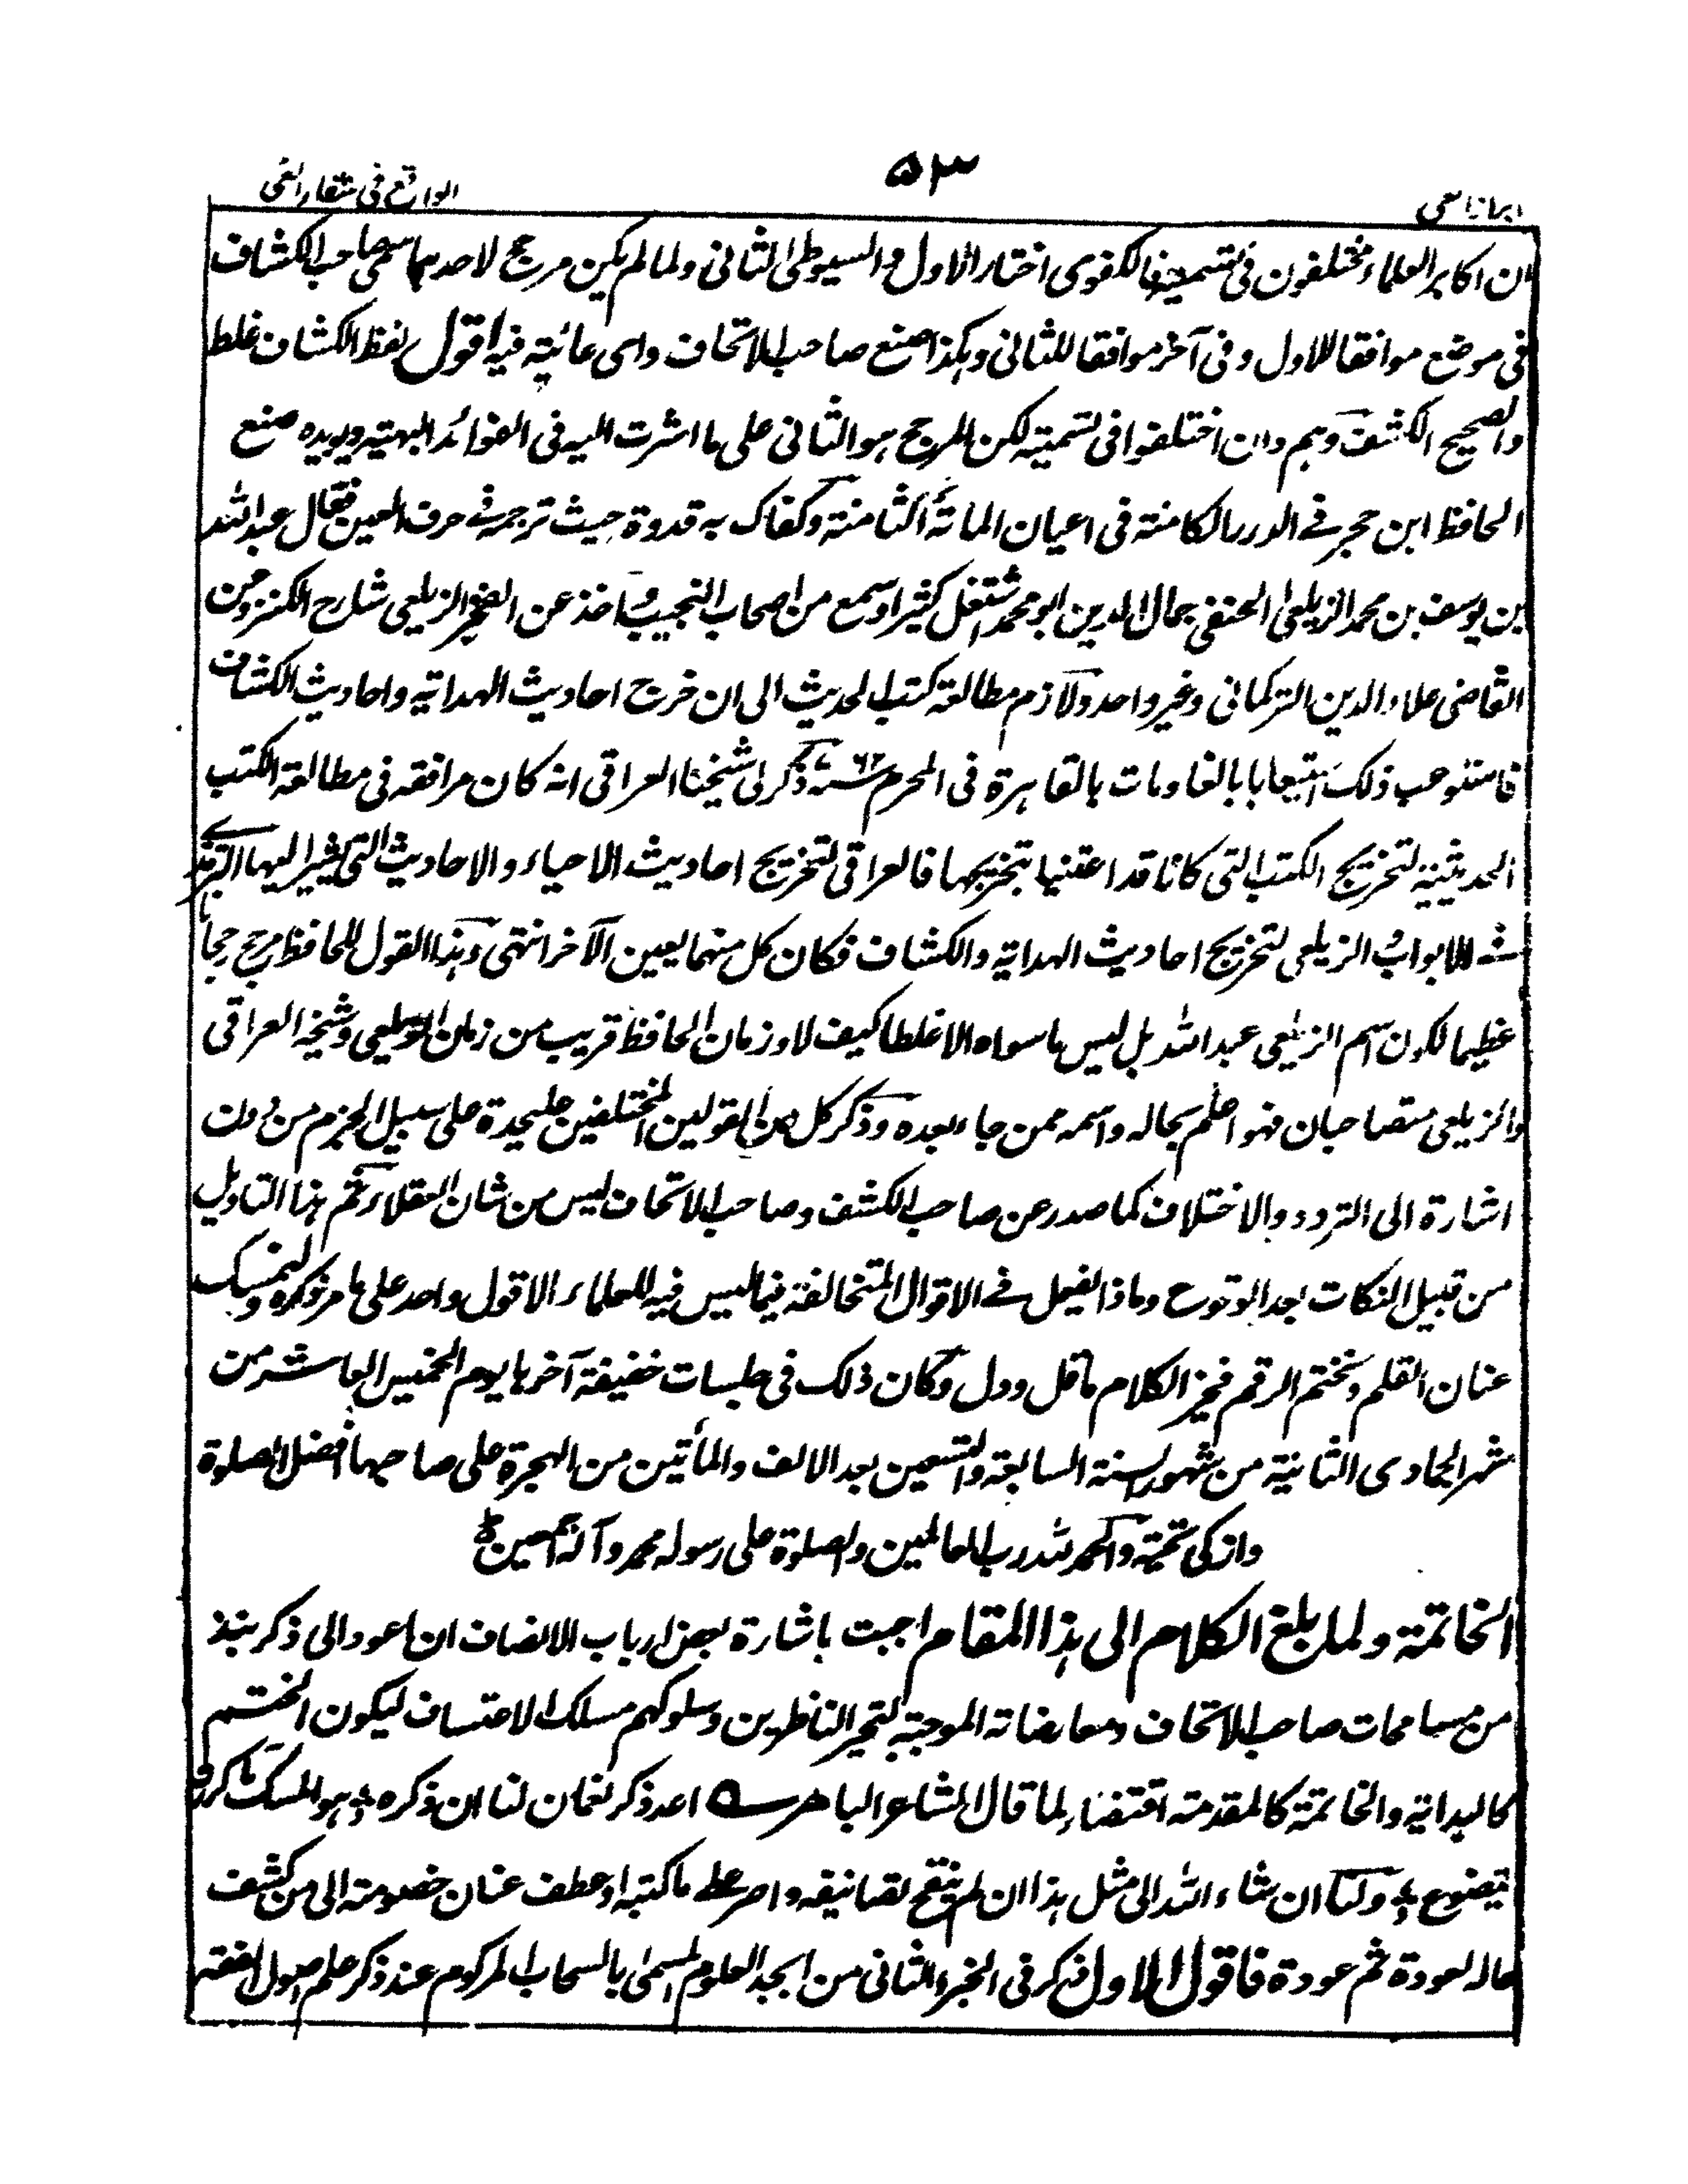 ابراز الغی
۵۳
الواقع فی شفاء العی
ان اکابر العلماء مختلفون فی تسمیته فالکفوی اختار الاول والسیوطی الثانی ولما لم یکن مرجح لاحدہما سمی صاحب الکشاف
فی موضع موافقا للاول وفی آخر موافقا للثانی وہکذا صنع صاحب الاتحاف وای عائبة فیه اقول لفظ الکشاف غلط
والصحیح الکشف وہم وان اختلفوا فی تسمیته لکن المرجح ہو الثانی علی ما اشرت الیه فی الفوائد البهیة ویویده صنع
الحافظ ابن حجر فے الدرر الکامنة فی اعیان المائة الثامنة وکفاک به قدوة حیث ترجمه فے حرف العین فقال عبد الله
بن یوسف بن محمد الزیلعی الحنفی جمال الدین ابو محمد اشتغل کثیرا وسمع من اصحاب النجیب واخذ عن الفخر الزیلعی شارح الکنز وعن
القاضی علاء الدین الترکمانی وغیر واحد ولازم مطالعة کتب الحدیث الی ان خرج احادیث الهدایة واحادیث الکشاف
فاستوعب ذلک استیعابا بالغا ومات بالقاہرة فی المحرم سنة ۷۶۲ ذکر لی شیخنا العراقی انه کان مرافقه فی مطالعة الکتب
الحدیثیة لتخریج الکتب التی کانا قد اعتنیا بتخریجها فالعراقی لتخریج احادیث الاحیاء والاحادیث التی یشیر الیها الترمذے
فے الابواب والزیلعی لتخریج احادیث الهدایة والکشاف فکان کل منهما یعین الآخر انتهی وہذا القول للحافظ مرجح رجحانا
عظیما لکون اسم الزیلعی عبد الله بل لیس ما سواه الا غلطا کیف لا وزمان الحافظ قریب من زمان الزیلعی وشیخه العراقی
والزیلعی متصاحبان فهو اعلم بحاله واسمه ممن جاء بعده وذکر کل من القولین المختلفین علیحدة علی سبیل الجزم من دون
اشارة الی التردد والاختلاف کما صدر عن صاحب الکشف وصاحب الاتحاف لیس من شان العقلاء ثم ہذا التاویل
من قبیل النکات بعد الوقوع وماذا یفعل فے الاقوال المتخالفة فیما لیس فیه للعلماء الا قول واحد علی ما مر ذکره ولنمسک
عنان القلم ونختم الرقم فخیر الکلام ما قل ودل وکان ذلک فی جلسات خفیفة آخرہا یوم الخمیس العاشر من
شهر الجمادی الثانیة من شهور السنة السابعة والتسعین بعد الالف والمأتین من الهجرة علی صاحبها افضل الصلوة
وازکی تحیة والحمد لله رب العالمین والصلوة علی رسوله محمد وآله اجمعین
الخاتمة ولما بلغ الکلام الی ہذا المقام اجبت باشارة بعض ارباب الانصاف ان اعود الی ذکر نبذ
من مسامحات صاحب الاتحاف ومعارضاته الموجبة لتحیر الناظرین وسلوکهم مسلک الاعتساف لیکون الختم
کالبدایة والخاتمة کالمقدمة اقتضاء لما قال الشاعر الباهر ے اعد ذکر نعمان لنا ان ذکره ہو المسک ما کررته
یتضوع ولنا ان شاء الله الی مثل ہذا ان لم ینقح تصانیفه واصر علے ما کتبه او عطف عنان خصومته الی من کشف
حاله لعودة ثم عودة فاقول الاول ذکر فی الجزء الثانی من ابجد العلوم المسمی بالسحاب المرکوم عند ذکر علم اصول الفقه